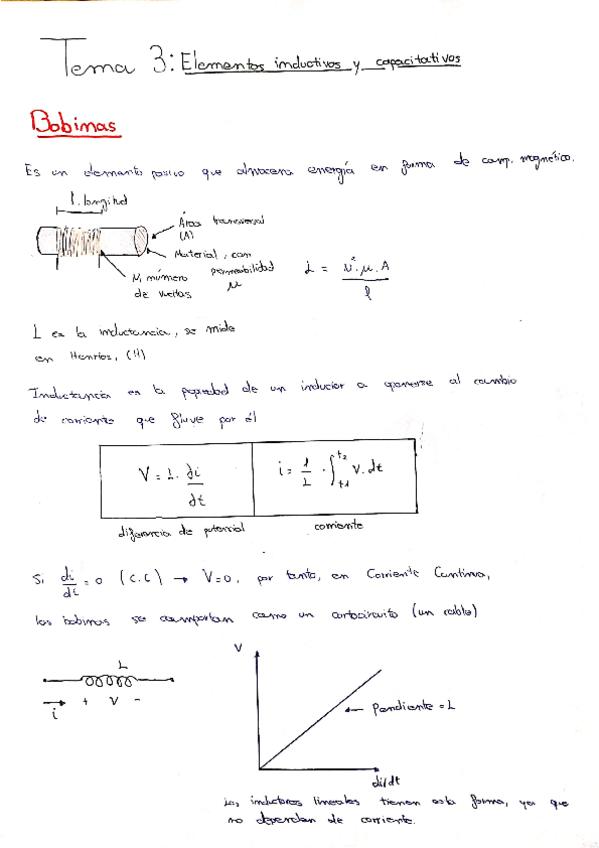 Tema 3: Elementos inductivos y capacitativos
Bobinas
Es un elemento pasivo que almacena energía en forma de camp. magnético.
l. longitud
Área transversal
(A)
Material, con
permeabilidad
μ
N, número
de vueltas
L = N². μ. A / l
L es la inductancia, se mide
en Henrios, (H)
Inductancia es la propiedad de un inductor a oponerse al cambio
de corriente que fluye por él
V = L. di/dt
i = 1/L . ∫t1 t2 v. dt
diferencia de potencial
corriente
Si di/dt = 0 (C.C) → V=0, por tanto, en Corriente Continua,
las bobinas se comportan como un cortocircuito (un cable)
L
i + V -
V
← Pendiente = L
di/dt
Los inductores lineales tienen esta forma, ya que
no dependen de corriente.